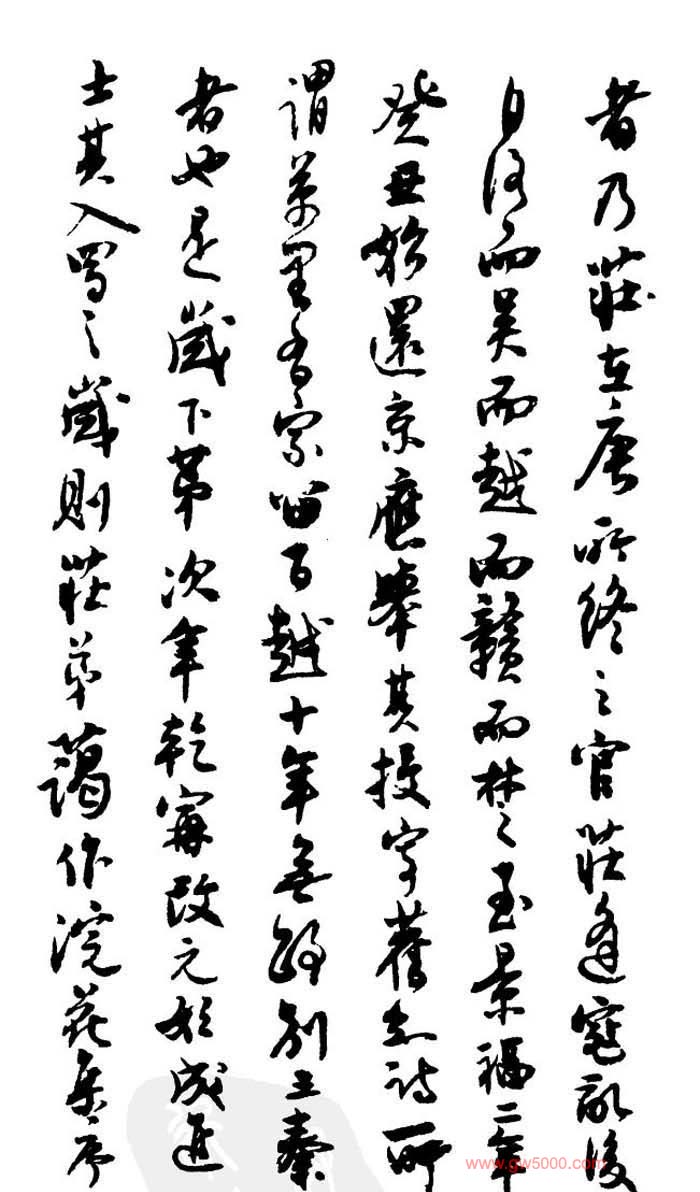 者乃莊在唐所終之官莊逢寇亂後
自洛而吳而越而贛而楚至景福二年
癸丑始還京應舉其投寄舊知詩所
謂萬里有家留百越十年無路到三秦
者也是歲下第次年乾寧改元始成進
士其入蜀之歲則莊弟藹作浣花集序
www.gw5000.com